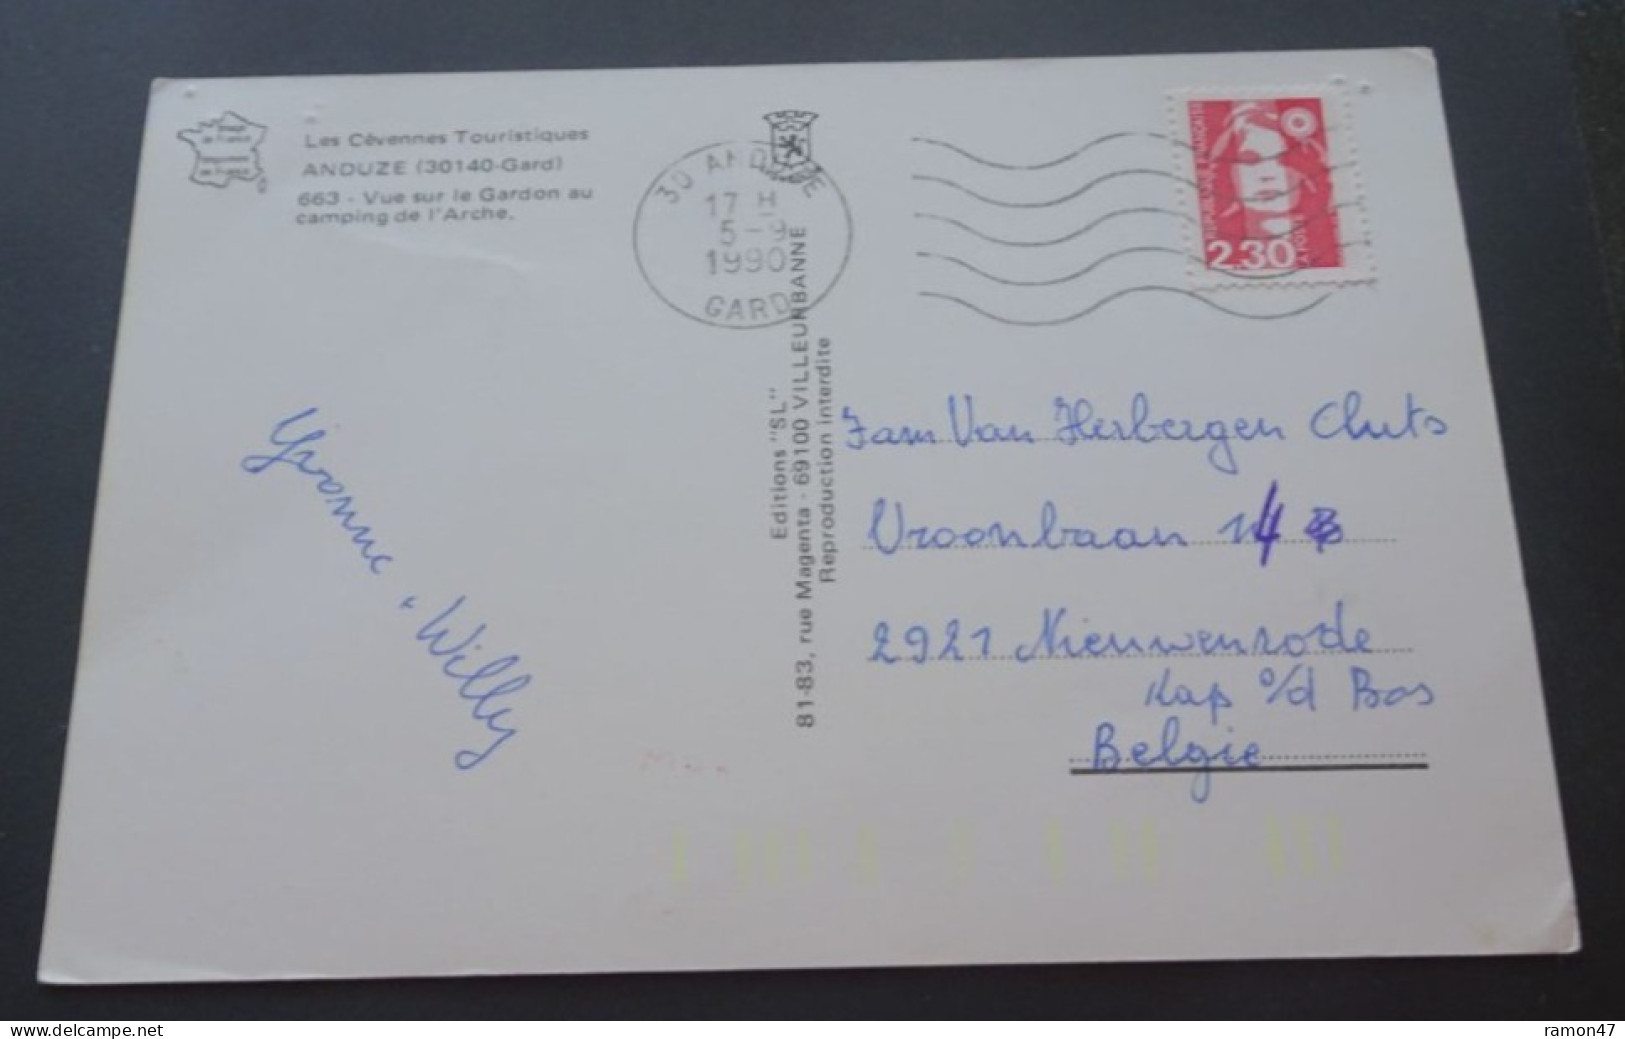 Les Cévennes Touristiques
ANDUZE (30140-Gard)
663 - Vue sur le Gardon au
camping de l'Arche.
30 ANDUZE
17 H
5-9
1990
GARD
REPUBLIQUE FRANÇAISE
LA POSTE
2.30
Editions "SL"
81-83, rue Magenta - 69100 VILLEURBANNE
Reproduction interdite
Yvonne - Willy
Fam Van Herbergen Cluts
Vroonbaan 14
2921 Nieuwenrode
Kap o/d Bos
Belgie
www.delcampe.net
ramon47